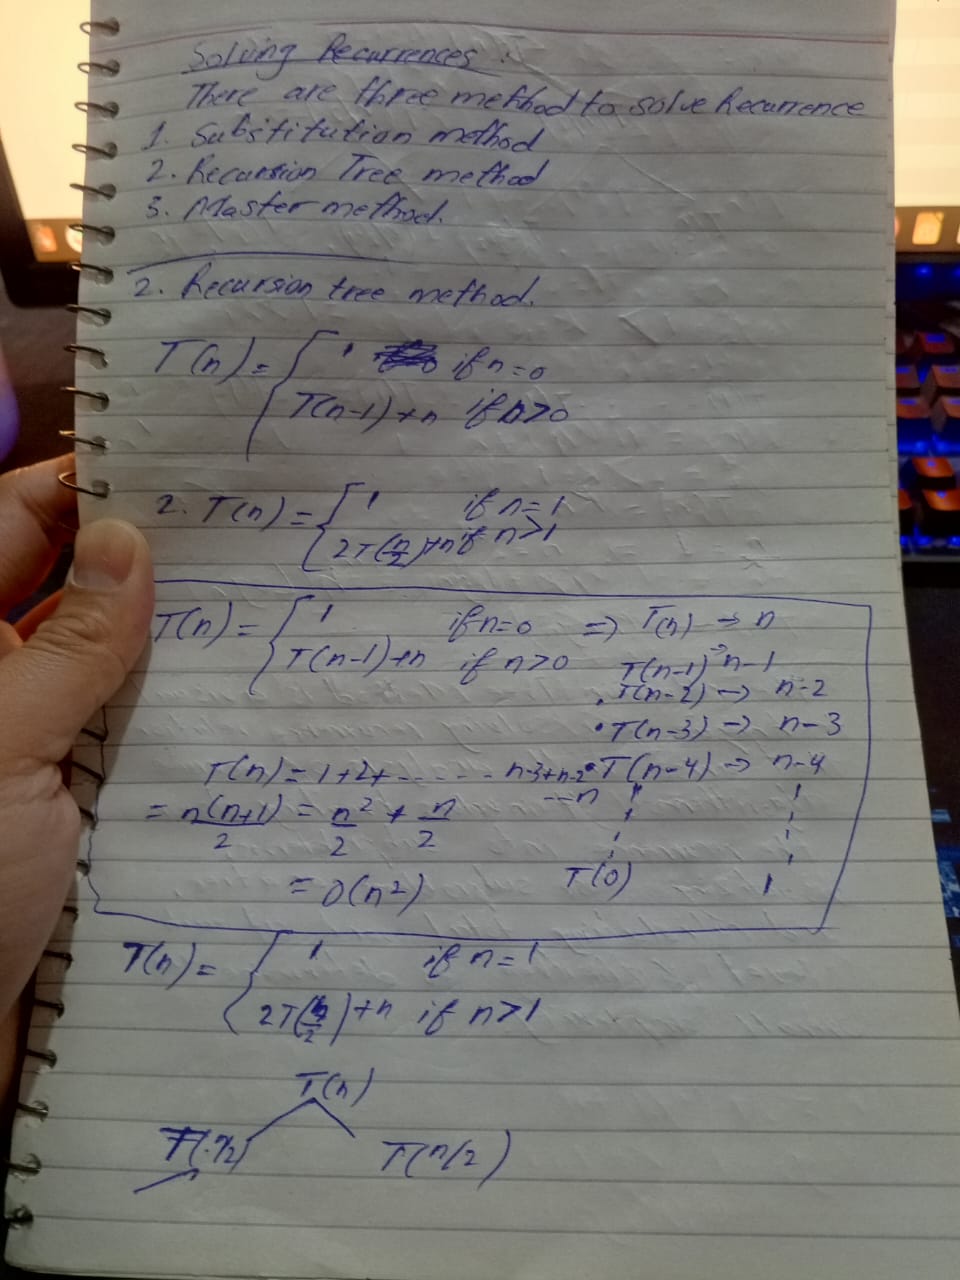 Solving Recurrences.
There are three method to solve Recurrence
1. Substitution method
2. Recursion Tree method
3. Master method.
2. Recursion tree method.
T(n) = { 1 if n=0
T(n-1)+n if n>0
2. T(n) = { 1 if n=1
2T(n/2)+n if n>1
T(n) = { 1 if n=0 => T(n) → n
T(n-1)+n if n>0 T(n-1) → n-1
. T(n-2) → n-2
• T(n-3) → n-3
T(n) = 1+2+ - - - - - - n-3+n-2 • T(n-4) → n-4
--n
= n(n+1)/2 = n²/2 + n/2
= O(n²) T(0) 1
T(n) = { 1 if n=1
2T(n/2)+n if n>1
T(n)
T(n/2) T(n/2)